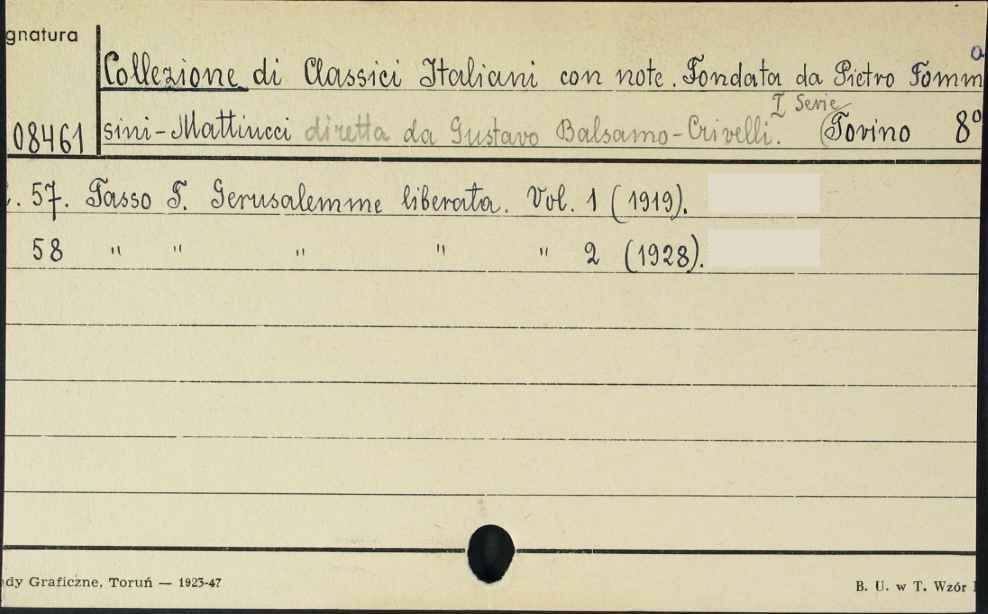 gnatura
Collezione di Classici Italiani con note. Fondata da Pietro Tomma
I Serie
08461 sini-Mattiucci diretta da Gustavo Balsamo-Crivelli. (Torino 8º
. 57. Tasso T. Gerusalemme liberata. Vol. 1 (1919).
58 " " " " " 2 (1928).
dy Graficzne, Toruń — 1923-47
B. U. w T. Wzór